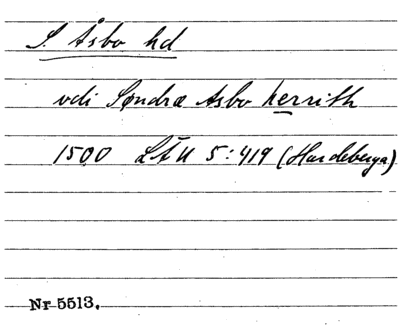 S. Åsbo hd
vdi Søndræ Asbo herrith
1500 LÄU 5:419 (Hardeberga)
Nr 5513.